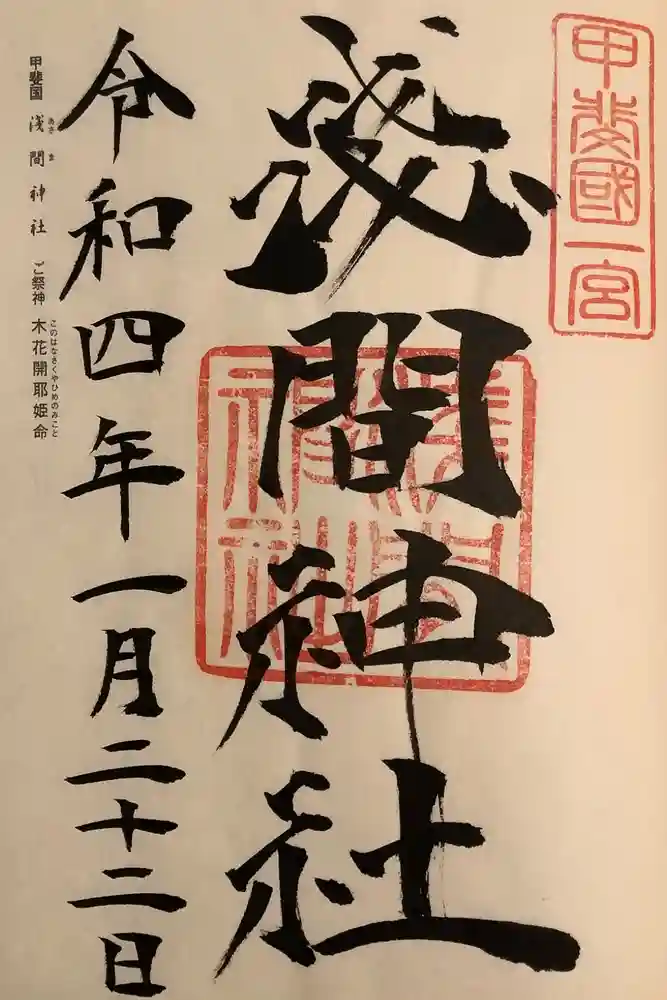 甲斐國一宮
淺間神社
淺間神社
令和四年一月二十二日
甲斐国 浅間神社 ご祭神 木花開耶姫命
あさま
このはなさくやひめのみこと